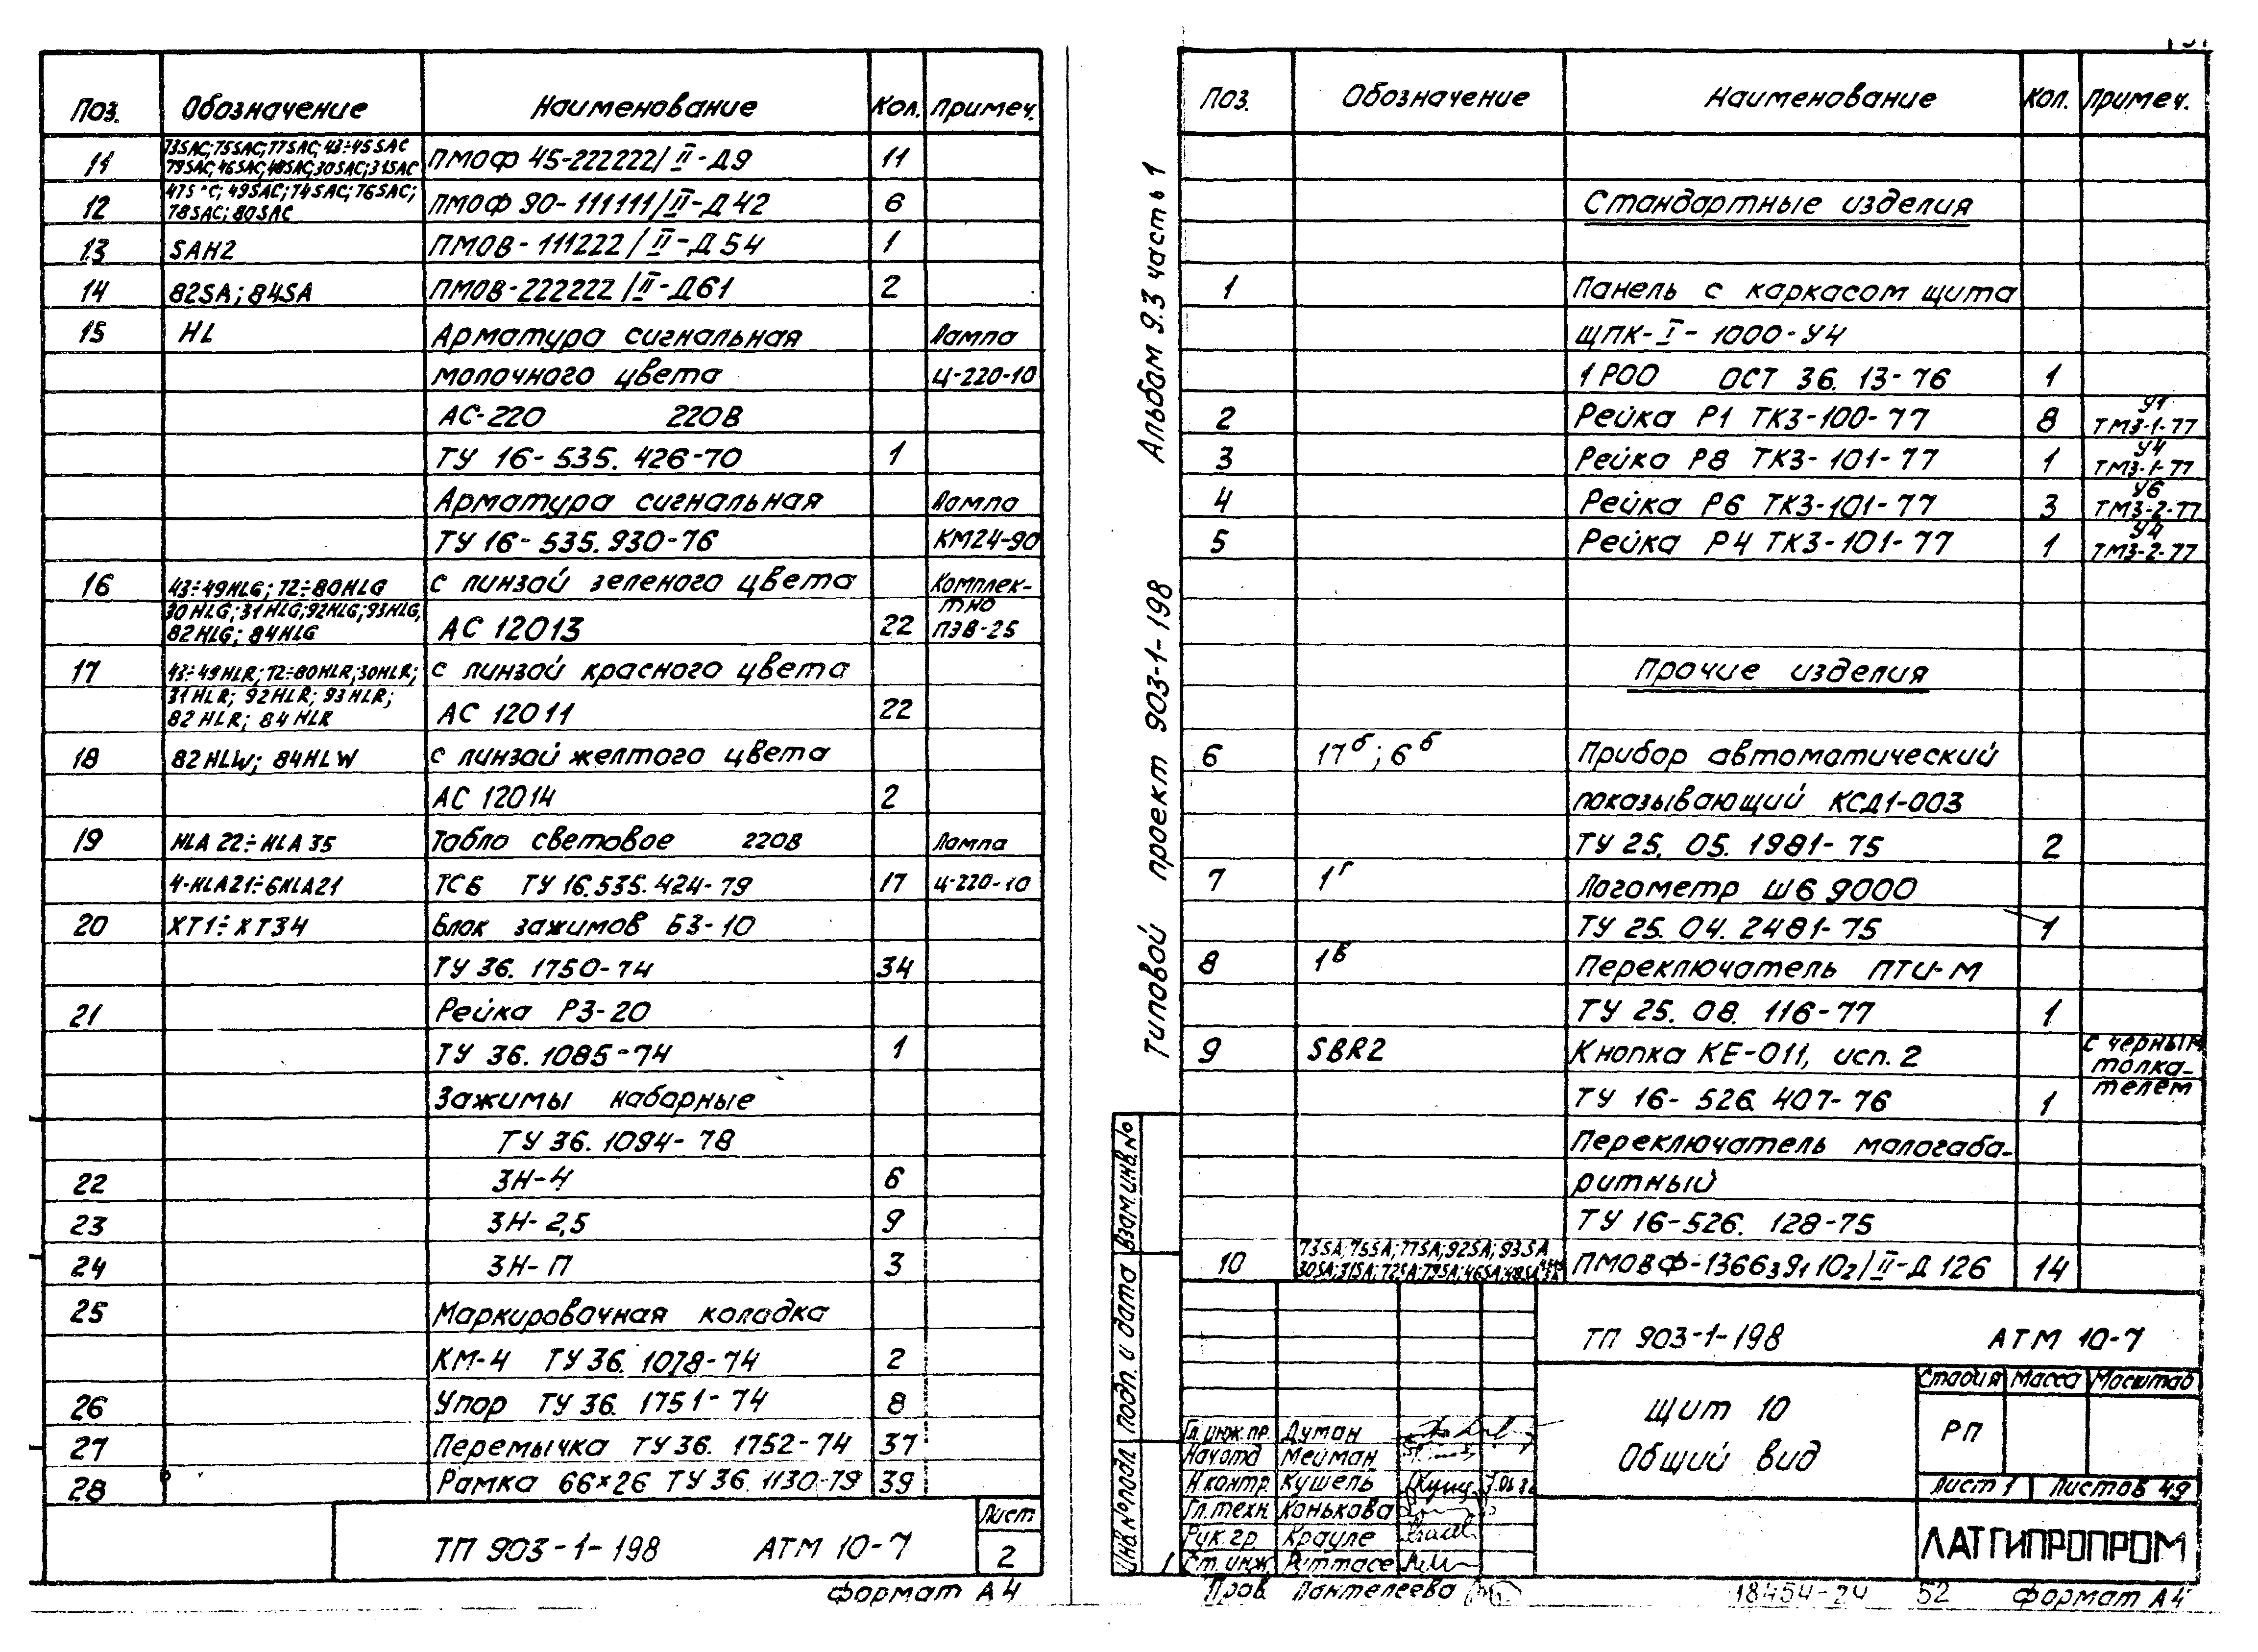 Поз. Обозначение Наименование Кол. Примеч.
73SAC; 75SAC; 77SAC; 43÷45SAC
11 79SAC; 46SAC; 48SAC; 30SAC; 31SAC ПМОФ 45-222222/II-Д9 11
49SAC; 74SAC; 76SAC;
12 78SAC; 80SAC ПМОФ 90-111111/II-Д42 6
13 SAH2 ПМОВ-111222/II-Д54 1
14 82SA; 84SA ПМОВ-222222/II-Д61 2
15 HL Арматура сигнальная Лампа
молочного цвета Ц-220-10
АС-220 220В
ТУ 16-535.426-70 1
Арматура сигнальная Лампа
ТУ 16-535.930-76 КМ24-90
16 43÷49HLG; 72÷80HLG с линзой зеленого цвета Комплек-
30HLG; 31HLG; 92HLG; 93HLG, тно
82HLG; 84HLG АС 12013 22 ПЭВ-25
17 43÷49HLR; 72÷80HLR; 30HLR; с линзой красного цвета
31HLR; 92HLR; 93HLR;
82HLR; 84HLR АС 12011 22
18 82HLW; 84HLW с линзой желтого цвета
АС 12014 2
19 HLA22÷HLA35 Табло световое 220В Лампа
4-HLA21÷6HLA21 ТСБ ТУ 16.535.424-79 17 Ц-220-10
20 XT1÷XT34 Блок зажимов БЗ-10
ТУ 36.1750-74 34
21 Рейка РЗ-20
ТУ 36.1085-74 1
Зажимы наборные
ТУ 36.1094-78
22 ЗН-4 6
23 ЗН-2,5 9
24 ЗН-П 3
25 Маркировочная колодка
КМ-4 ТУ 36.1078-74 2
26 Упор ТУ 36.1751-74 8
27 Перемычка ТУ 36.1752-74 37
28 Рамка 66×26 ТУ 36.1130-79 39
ТП 903-1-198 АТМ 10-7 Лист
2
Формат А4
Типовой проект 903-1-198 Альбом 9.3 часть 1
Поз. Обозначение Наименование Кол. Примеч.
Стандартные изделия
1 Панель с каркасом щита
ЩПК-I-1000-У4
1 РОО ОСТ 36.13-76 1
2 Рейка Р1 ТК3-100-77 8 У1 ТМ3-1-77
3 Рейка Р8 ТК3-101-77 1 У4 ТМ3-1-77
4 Рейка Р6 ТК3-101-77 3 У6 ТМ3-2-77
5 Рейка Р4 ТК3-101-77 1 У4 ТМ3-2-77
Прочие изделия
6 17б; 6б Прибор автоматический
показывающий КСД1-003
ТУ 25.05.1981-75 2
7 1г Логометр Ш69000
ТУ 25.04.2481-75 1
8 1в Переключатель ПТИ-М
ТУ 25.08.116-77 1
9 SBR2 Кнопка КЕ-011, исп.2 с черным
толка-
ТУ 16-526.407-76 1 телем
Переключатель малогаба-
ритный
ТУ 16-526.128-75
73SA; 75SA; 77SA; 92SA; 93SA
10 30SA; 31SA; 72SA; 79SA; 46SA; 48SA ПМОВФ-1366391102/II-Д126 14
Взам.инв.№
Подп. и дата
Инв.№ подл.
ТП 903-1-198 АТМ 10-7
Щит 10
Общий вид
Стадия Масса Масштаб
РП
Лист 1 Листов 49
ЛАТГИПРОПРОМ
Гл.инж.пр. Думан
Нач.отд Мейман
Н.контр. Кушель
Гл.техн. Конькова
Рук.гр. Крауле
Ст.инж. Риттасе
Пров. Пантелеева
18454-24 52 Формат А4